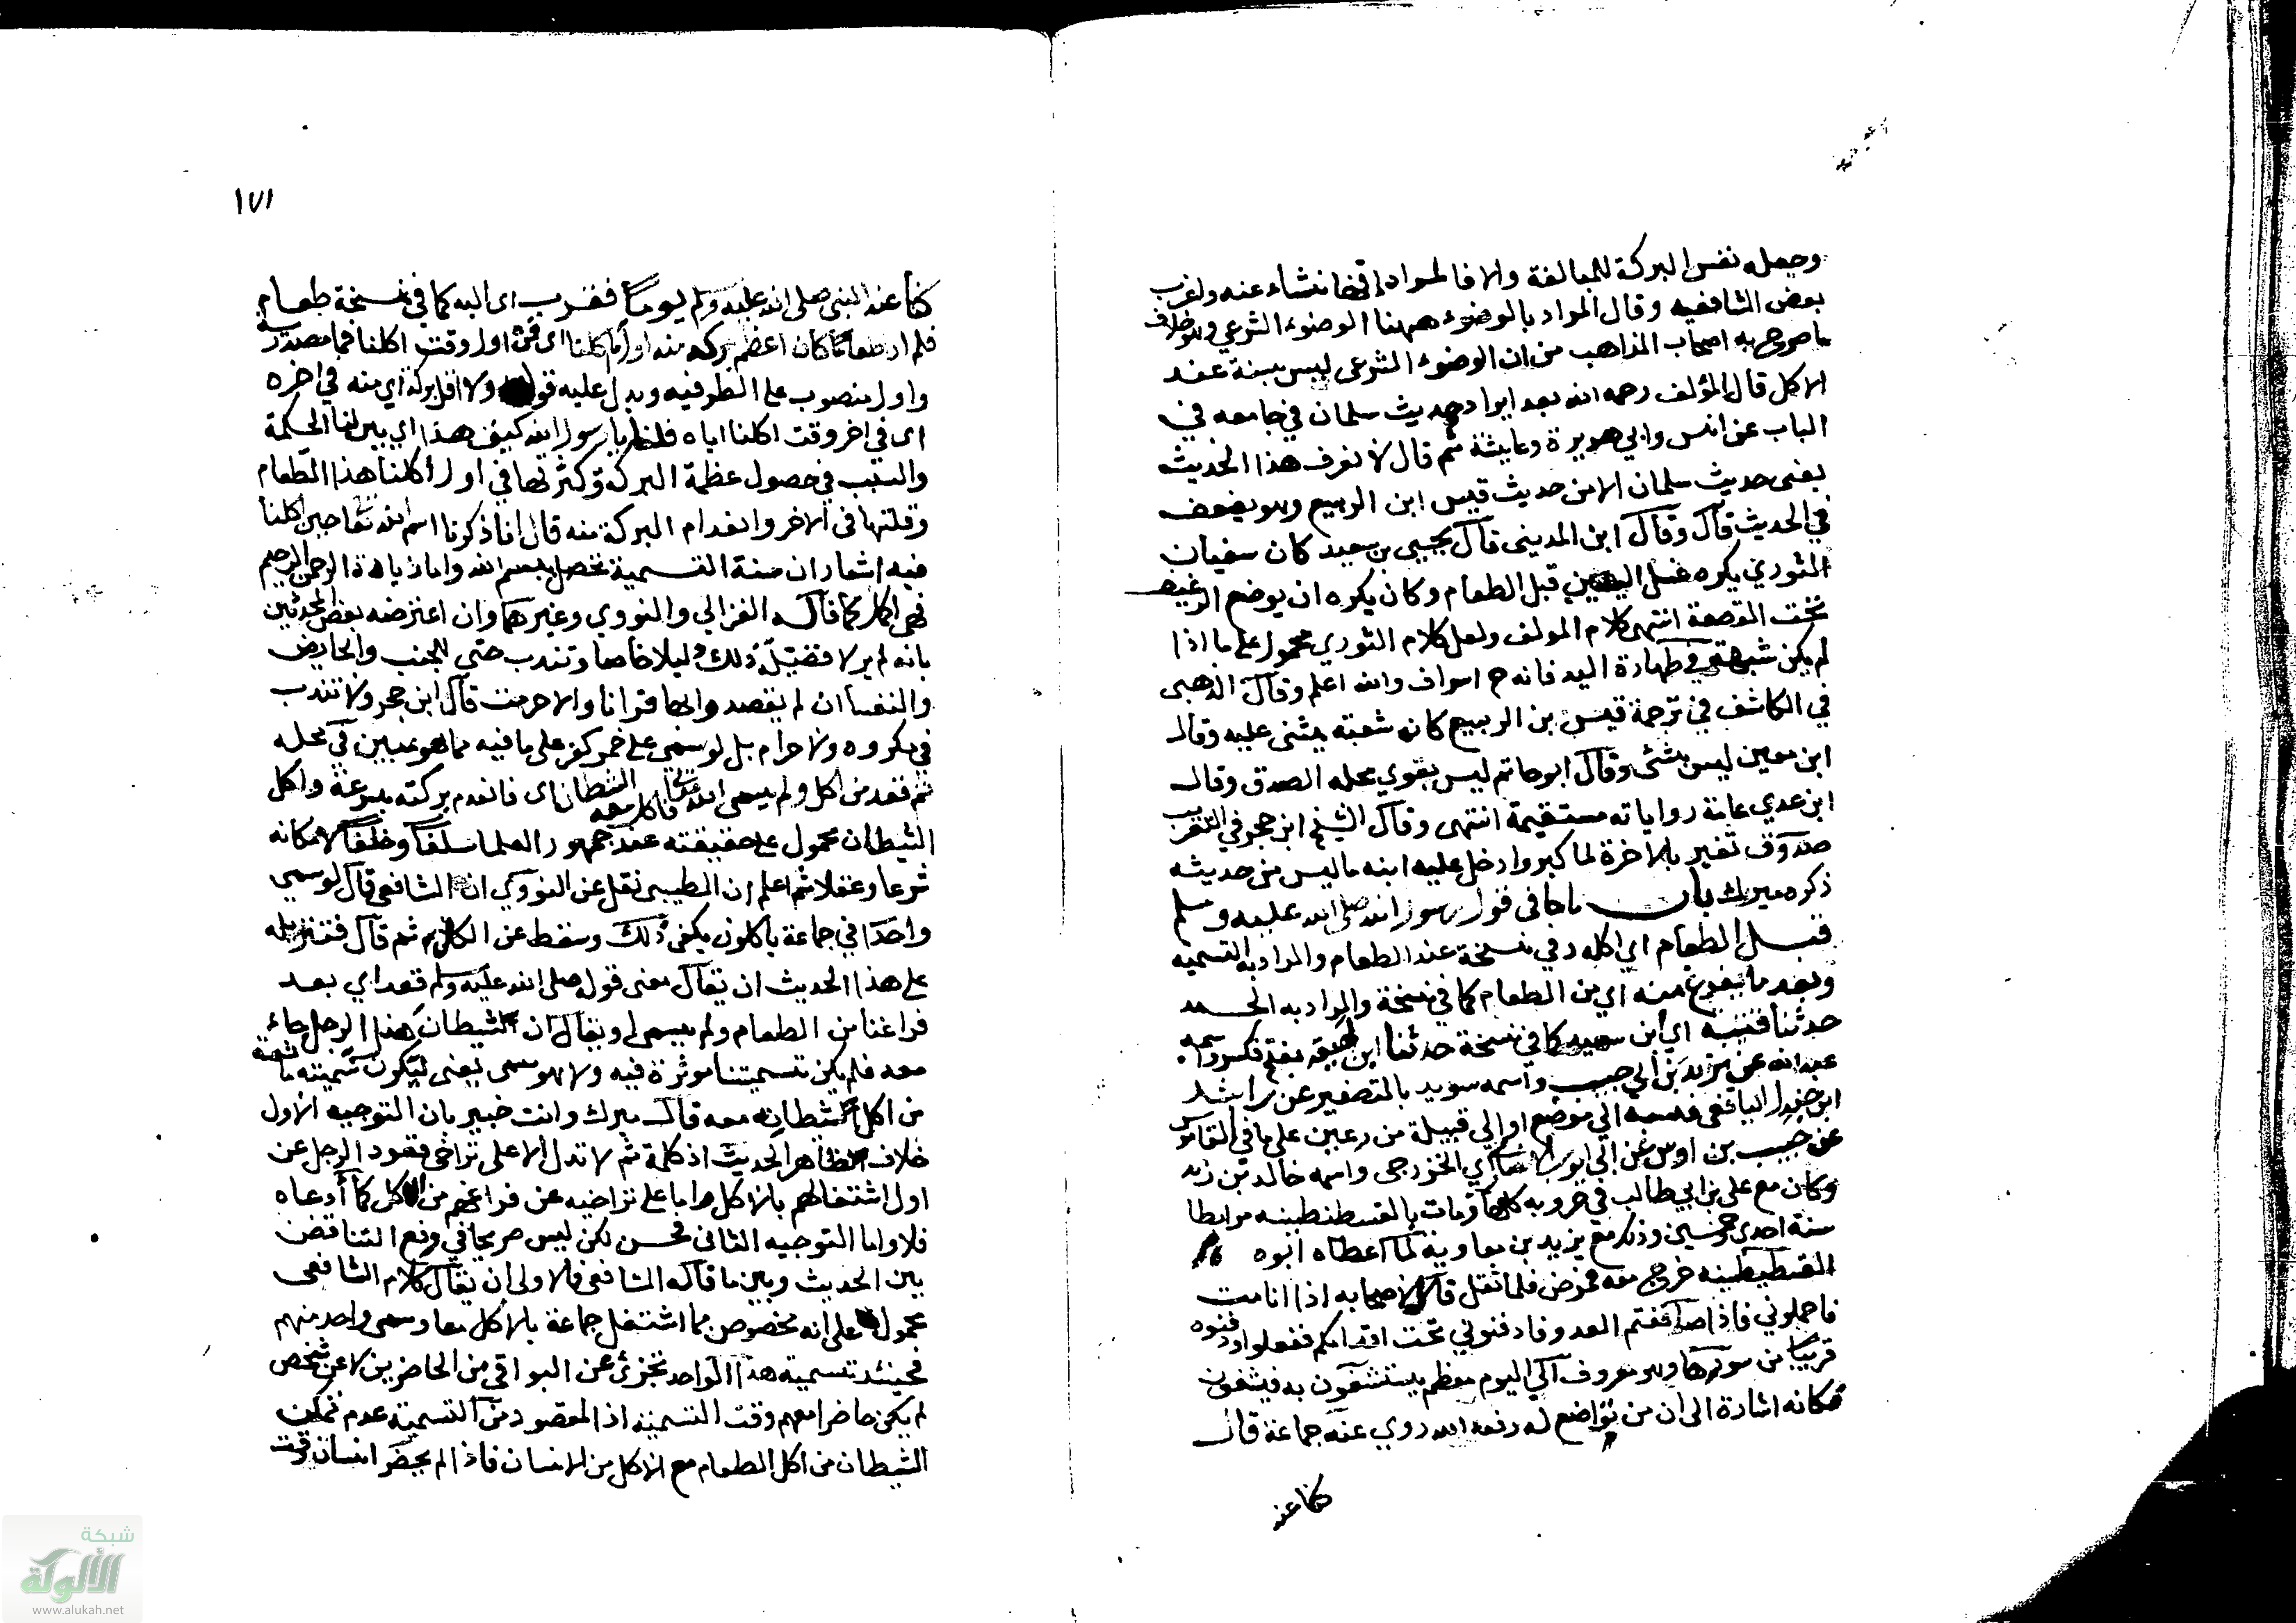 وجعله نفس البركة للمبالغة والا فالمراد انها تنشاء عنه واغرب
بعض الشافعيه وقال المراد بالوضوء ههنا الوضوء الشرعي وهو خلاف
ما صرح به اصحاب المذاهب من ان الوضوء الشرعي ليس بسنة عند
الاكل قال المؤلف رحمه الله بعد ايراد حديث سلمان في جامعه في
الباب عن انس وابي هريرة وعايشة ثم قال لا نعرف هذا الحديث
يعنى حديث سلمان الا من حديث قيس ابن الربيع وهو يضعف
في الحديث قال وقال ابن المديني قال يحيى بن سعيد كان سفيان
الثوري يكره غسل اليدين قبل الطعام وكان يكره ان يوضع الرغيف
تحت القصعة انتهى كلام المولف ولعل كلام الثوري محمول على ما اذا
لم يكن شبهة في طهارة اليد فانه ح اسراف والله اعلم وقال الذهبي
في الكاشف في ترجمة قيس بن الربيع كان شعبة يثنى عليه وقال
ابن معين ليس بشئ وقال ابو حاتم ليس بقوي محله الصدق وقال
ابن عدي عامة رواياته مستقيمة انتهى وقال الشيخ ابن حجر في التقريب
صدوق تغير بالاخرة لما كبر وادخل عليه ابنه ما ليس من حديثه
ذكره ميرك باب ما جا في قول رسول الله صلى الله عليه وسلم
قبل الطعام اي اكله وفي نسخة عند الطعام والمراد به التسمية
وبعد ما يفرغ منه اي من الطعام كما في نسخة والمراد به الحمد
حدثنا قتيبة اي ابن سعيد كما في نسخة حدثنا ابن لهيعة بفتح فكسر واسمه
عبد الله عن يزيد بن ابي حبيب واسمه سويد بالتصغير عن راشد
ابن جندل اليافعي نسبة الي موضع او الي قبيلة من رعين على ما في القاموس
عن حبيب بن اوس عن ابي ايوب الانصاري الخزرجي واسمه خالد بن زيد
وكان مع علي بن ابي طالب في حروبه كلها ومات بالقسطنطينيه مرابطا
سنة احدى وخمسين وذلك مع يزيد بن معاوية لما اعطاه ابوه
القسطنطينيه خرج معه فمرض فلما ثقل قال لاصحابه اذا انا مت
فاحملوني فاذا صاففتم العدو فادفنوني تحت اقدامكم ففعلوا ودفنوه
قريبا من سورها وهو معروف الى اليوم معظم يستشفون به فيشفون
فكانه اشارة الى ان من تواضع لله رفعه الله روي عنه جماعة قال
كنا عند
١٧١
كنا عند النبي صلى الله عليه وسلم يوما فقرب اى اليه كما في نسخة طعام
فلم ار طعاما كان اعظم بركه منه اول ما اكلنا اى في اول وقت اكلنا فما مصدرية
واول منصوب على الظرفيه ويدل عليه قوله ولا اقل بركة اي منه في اخره
اى في اخر وقت اكلنا اياه قلنا يا رسول الله كيف هذا اي بين لنا الحكمة
والسبب في حصول عظمة البركة وكثرتها في اول اكلنا هذا الطعام
وقلتها في الاخر وانعدام البركة منه قال انا ذكرنا اسم الله تعا حين اكلنا
فيه اشعار ان سنة التسمية تحصل ببسم الله واما زيادة الرحمن الرحيم
فهى اكمل كما قاله الغزالي والنووي وغيرهما وان اعترضه بعض المحدثين
بانه لم ير لافضلية ذلك دليلا خاصا وتندب حتى للجنب والحايض
والنفسا ان لم يقصدوا بها قرانا والا حرمت قال ابن حجر ولا تندب
في مكروه ولا حرام بل لو سمى على خمر كفر على ما فيه مما هو مبين في محله
ثم قعد من اكل ولم يسمى الله تعالى فاكل معه الشيطان اى فانعدم بركته بسرعة واكل
الشيطان محمول على حقيقته عند جمهور العلما سلفا وخلفا لامكانه
شرعا وعقلا ثم اعلم ان الطيبي نقل عن النووي ان الشافعي قال لو سمى
واحد في جماعة ياكلون يكفي ذلك وسقط عن الكل ثم قال فتنزيله
على هذا الحديث ان يقال معنى قوله صلى الله عليه وسلم قعد اي بعد
فراغنا من الطعام ولم يسمى او يقال ان الشيطان هذا الرجل جاء
معه فلم يكن تسميتنا موثرة فيه ولا هو سمى يعنى لتكون تسميته مانعة
من اكل الشيطان معه قال ميرك وانت خبير بان التوجيه الاول
خلاف الظاهر الحديث اذ كلمة ثم لا تدل الا على تراخي قعود الرجل عن
اول اشتغالهم بالاكل واما على تراخيه عن فراغهم من الاكل كما ادعاه
فلا واما التوجيه الثاني فحسن لكن ليس صريحا في دفع التناقض
بين الحديث وبين ما قاله الشافعي فالاولى ان يقال كلام الشافعي
محمول على انه مخصوص بما اشتغل جماعة بالاكل معا وسمى واحد منهم
فحينئذ تسمية هذا الواحد تجزئ عن البواقي من الحاضرين لا عن شخص
لم يكن حاضرا معهم وقت التسمية اذ المقصود من التسمية عدم تمكن
الشيطان من اكل الطعام مع الاكل من الانسان فاذا لم يحضر انسان وقت
شبكة
الألوكة
www.alukah.net